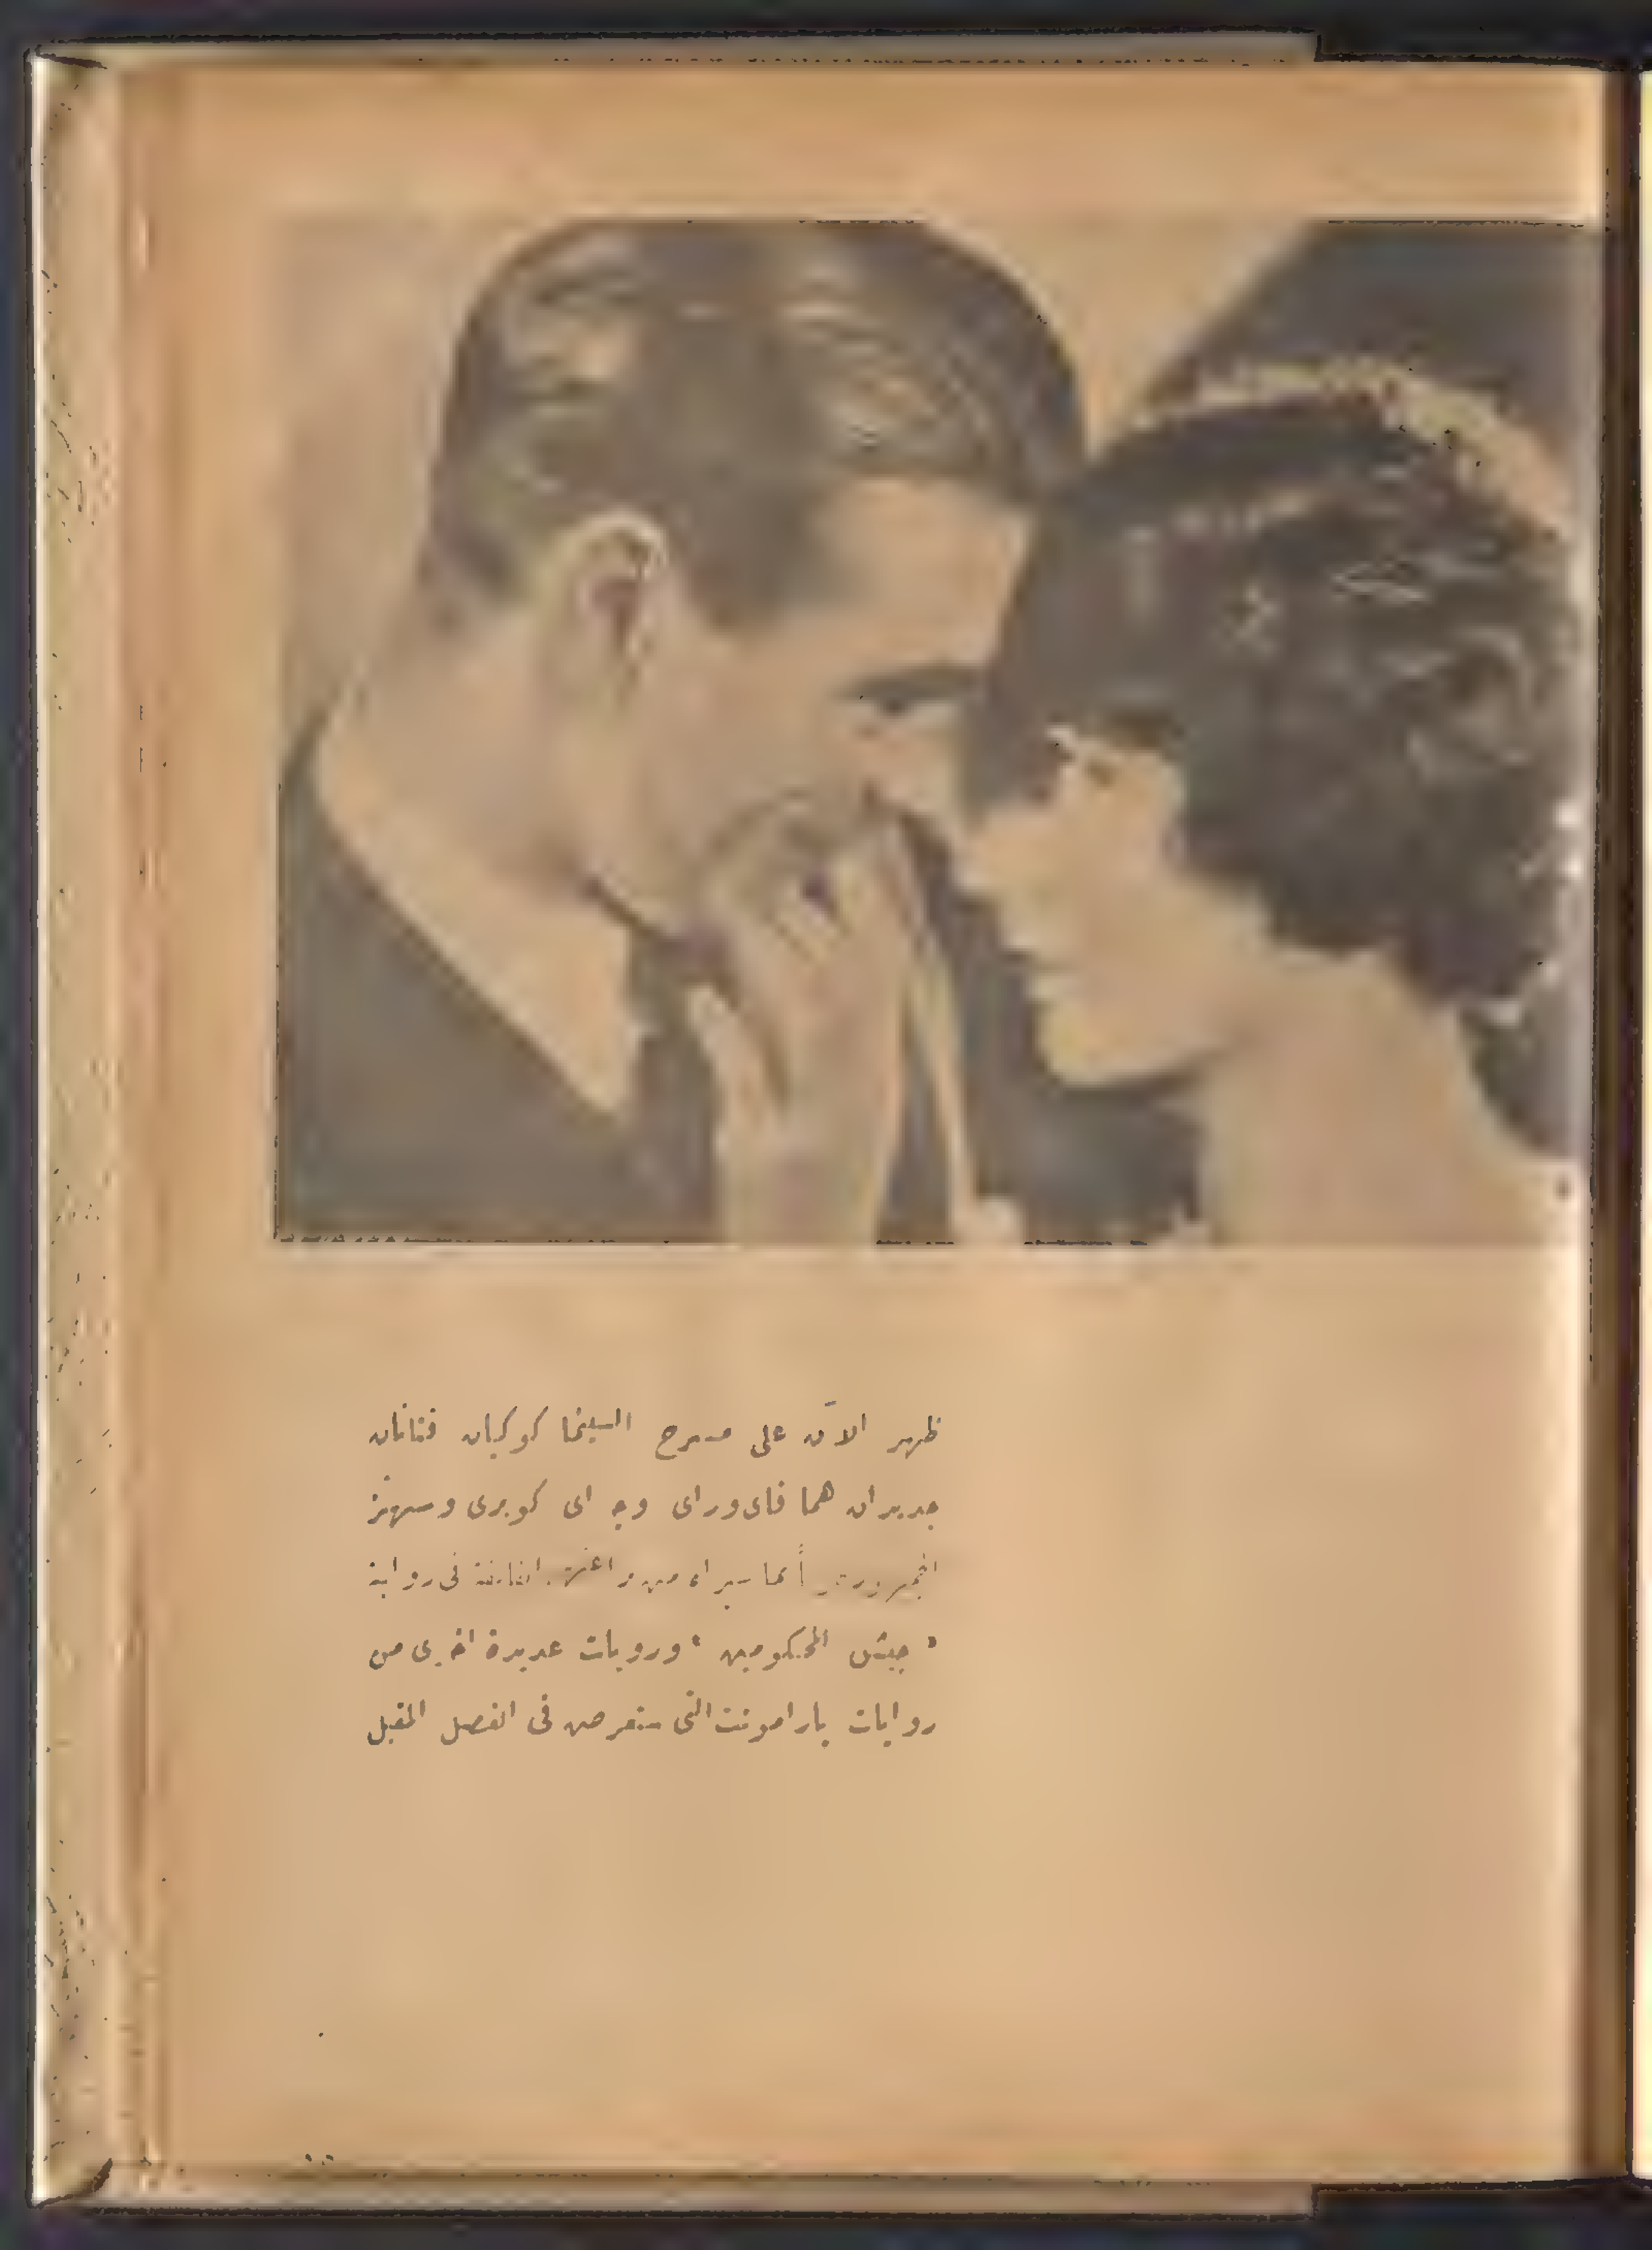 ظهر الآن على مسرح السينما كوكبان فتانان
جديدان هما فاى وراى وج اى كوبرى وسيهتز
الجمهور أيما من الفائقة فى رواية
« جيش المحكومين » وروايات عديدة اخرى من
روايات بارامونت التى ستعرض فى الفصل المقبل